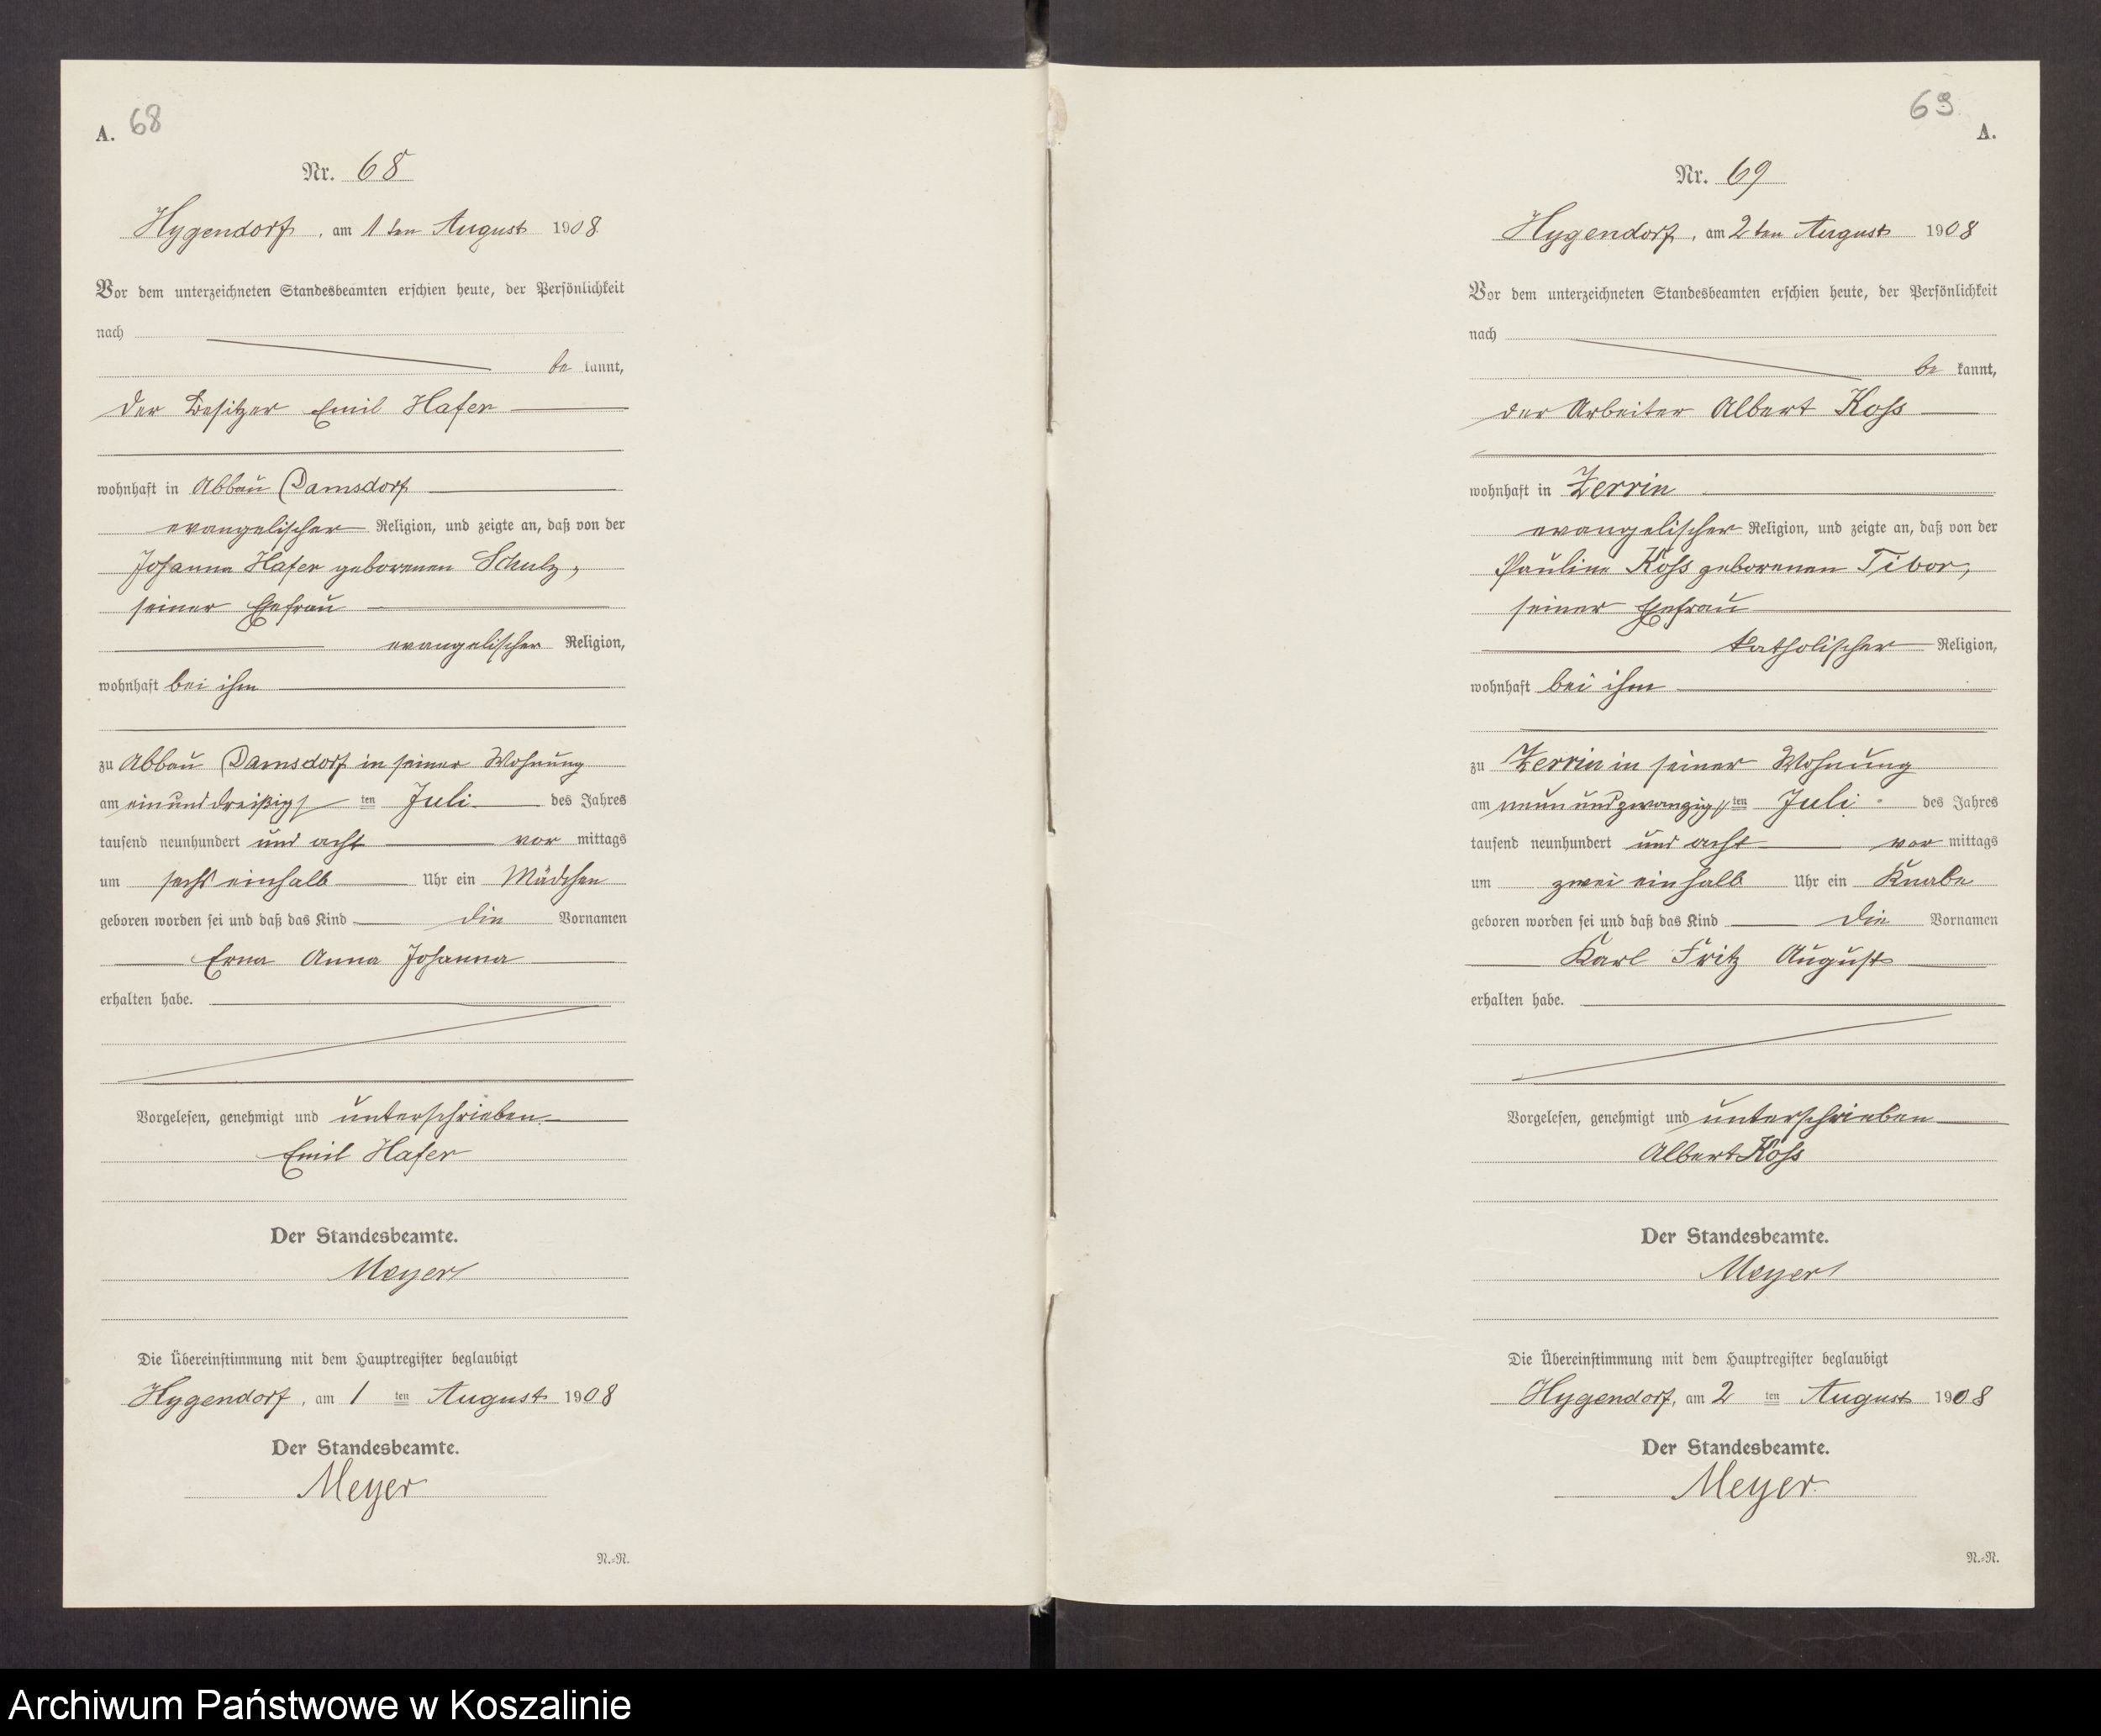 68
A.
Nr. 68
Hygendorf, am 1ten August 1908.
Vor dem unterzeichneten Standesbeamten erschien heute, der Persönlichkeit
nach
be kannt,
der Besitzer Emil Hafer
wohnhaft in Abbau Damsdorf
evangelischer Religion, und zeigte an, daß von der
Johanna Hafer geborenen Schulz,
seiner Ehefrau
evangelischer Religion,
wohnhaft bei ihm
zu Abbau Damsdorf in seiner Wohnung
am einunddreißigsten Juli des Jahres
tausend neunhundert und acht vor mittags
um sechs einhalb Uhr ein Mädchen
geboren worden sei und daß das Kind die Vornamen
Erna Anna Johanna
erhalten habe.
Vorgelesen, genehmigt und unterschrieben.
Emil Hafer
Der Standesbeamte.
Meyer
Die Übereinstimmung mit dem Hauptregister beglaubigt
Hygendorf, am 1 ten August 1908
Der Standesbeamte.
Meyer
N.=N.
69
A.
Nr. 69
Hygendorf, am 2ten August 1908
Vor dem unterzeichneten Standesbeamten erschien heute, der Persönlichkeit
nach
be kannt,
der Arbeiter Albert Koss
wohnhaft in Zerrin
evangelischer Religion, und zeigte an, daß von der
Pauline Koss geborenen Tibor,
seiner Ehefrau
katholischer Religion,
wohnhaft bei ihm
zu Zerrin in seiner Wohnung
am neunundzwanzigsten Juli des Jahres
tausend neunhundert und acht vor mittags
um zwei einhalb Uhr ein Knabe
geboren worden sei und daß das Kind die Vornamen
Karl Fritz August
erhalten habe.
Vorgelesen, genehmigt und unterschrieben
Albert Koss
Der Standesbeamte.
Meyer
Die Übereinstimmung mit dem Hauptregister beglaubigt
Hygendorf, am 2 ten August 1908
Der Standesbeamte.
Meyer
N.=N.
Archiwum Państwowe w Koszalinie